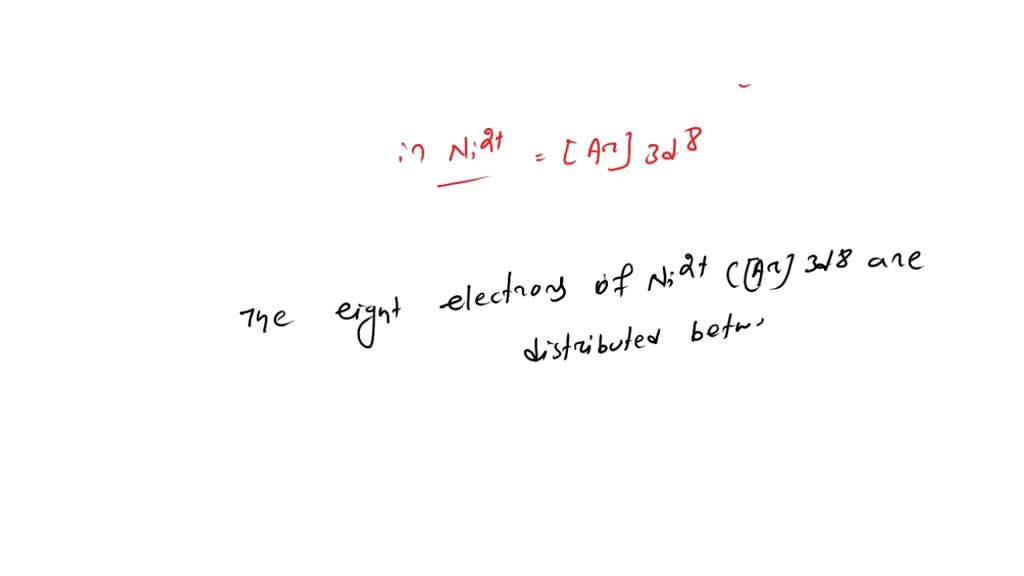 in Ni2+ = [Ar] 3d8
The eight electrons of Ni2+ ([Ar] 3d8 are
distributed betw